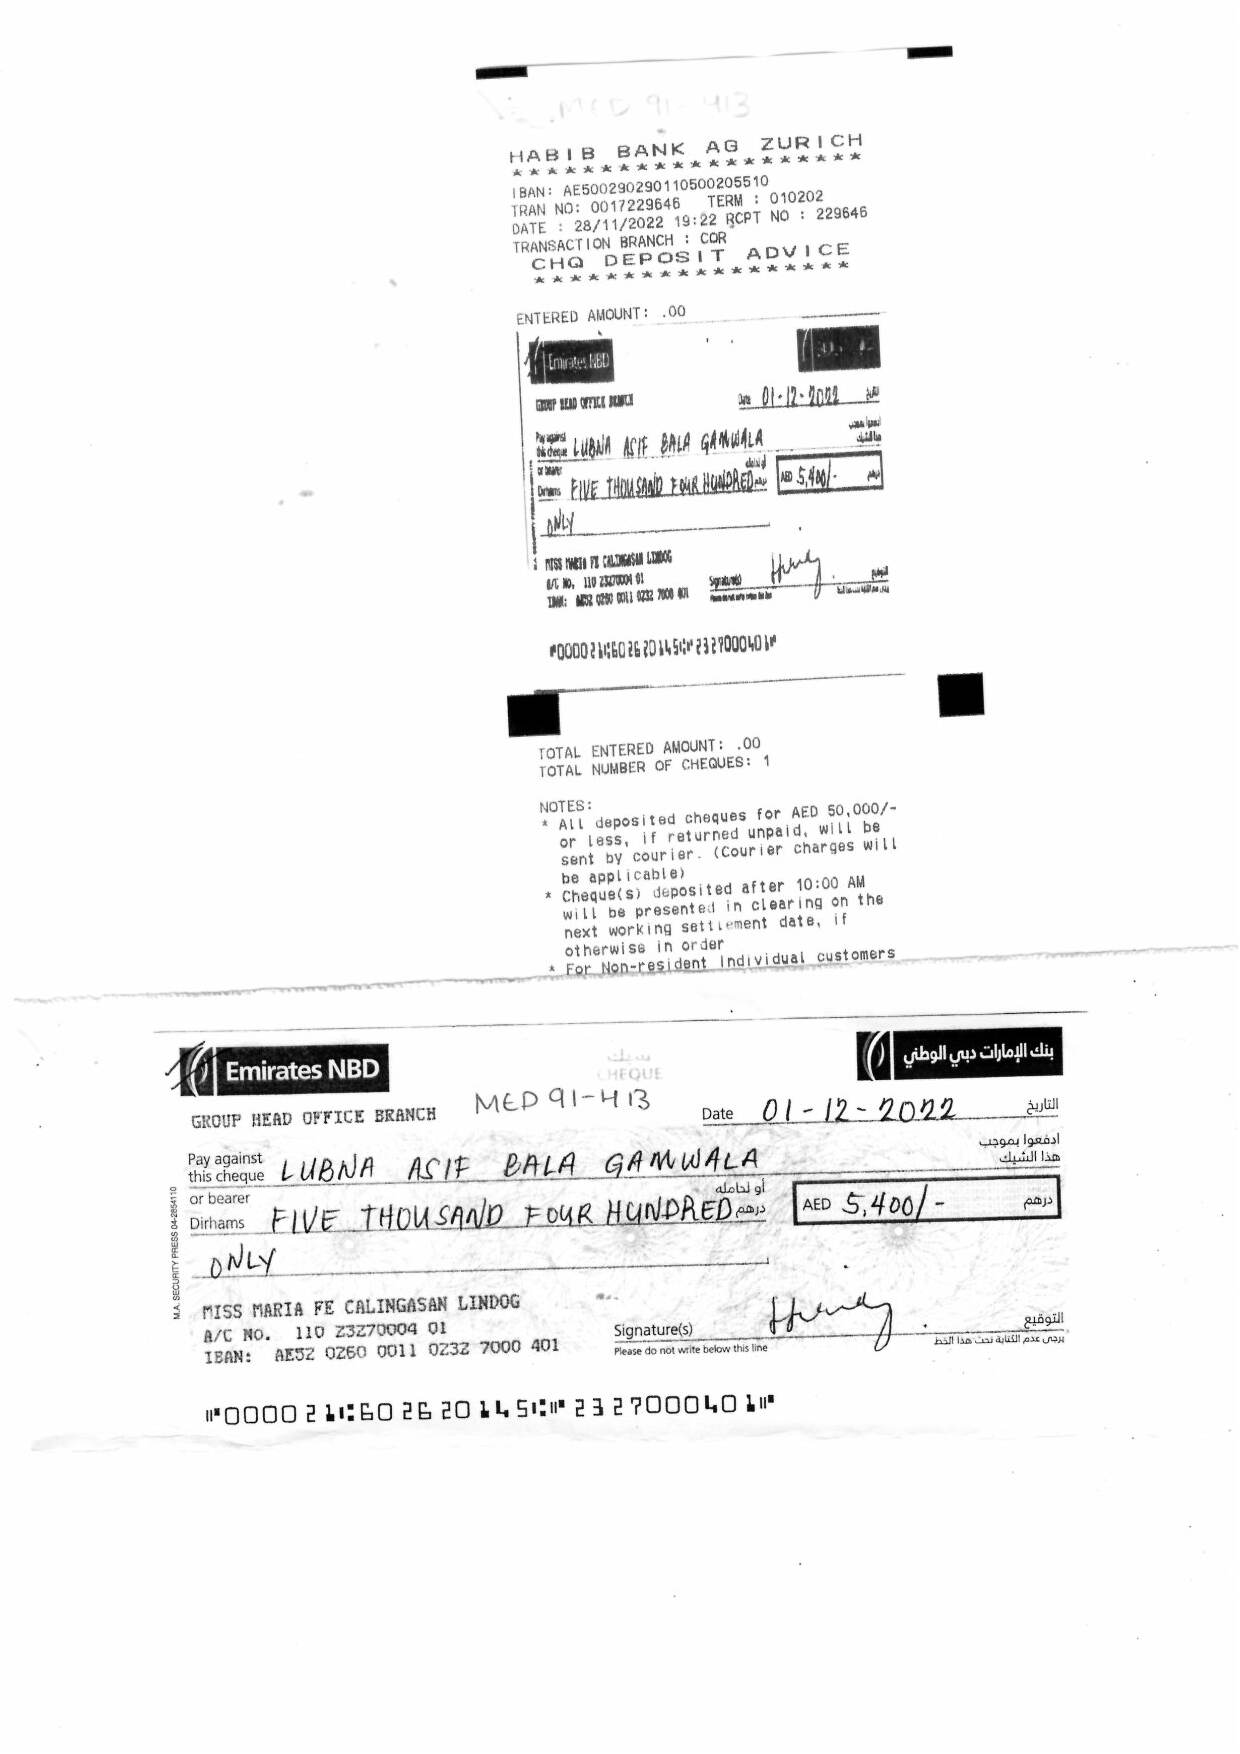 MED 91-413
HABIB BANK AG ZURICH
* * * * * * * * * * * * * * * * * * * *
IBAN: AE500290290110500205510
TRAN NO: 0017229646 TERM : 010202
DATE : 28/11/2022 19:22 RCPT NO : 229646
TRANSACTION BRANCH : COR
CHQ DEPOSIT ADVICE
* * * * * * * * * * * * * * * * * *
ENTERED AMOUNT: .00
Emirates NBD
GROUP HEAD OFFICE BRANCH
Date 01-12-2022 التاريخ
Pay against ادفعوا بموجب
this cheque LUBNA ASIF BALA GAMWALA هذا الشيك
or bearer أو لحامله
Dirhams FIVE THOUSAND FOUR HUNDRED درهم AED 5,400/- درهم
ONLY
MISS MARIA FE CALINGASAN LINDOG
A/C NO. 110 23270004 01 Signature(s) التوقيع
IBAN: AE52 0260 0011 0232 7000 401 Please do not write below this line
⑈000021⑆602620145⑆⑈2327000401⑈
TOTAL ENTERED AMOUNT: .00
TOTAL NUMBER OF CHEQUES: 1
NOTES:
* All deposited cheques for AED 50,000/-
or less, if returned unpaid, will be
sent by courier. (Courier charges will
be applicable)
* Cheque(s) deposited after 10:00 AM
will be presented in clearing on the
next working settlement date, if
otherwise in order
* For Non-resident Individual customers
Emirates NBD
بنك الإمارات دبي الوطني
شيك
CHEQUE
GROUP HEAD OFFICE BRANCH MED 91-413 Date 01-12-2022 التاريخ
Pay against ادفعوا بموجب
this cheque LUBNA ASIF BALA GAMWALA هذا الشيك
or bearer أو لحامله
Dirhams FIVE THOUSAND FOUR HUNDRED درهم AED 5,400/- درهم
ONLY
M.A. SECURITY PRESS 04-2854110
MISS MARIA FE CALINGASAN LINDOG
A/C NO. 110 23270004 01 Signature(s) التوقيع
IBAN: AE52 0260 0011 0232 7000 401 Please do not write below this line يرجى عدم الكتابة تحت هذا الخط
⑈000021⑆602620145⑆⑈2327000401⑈